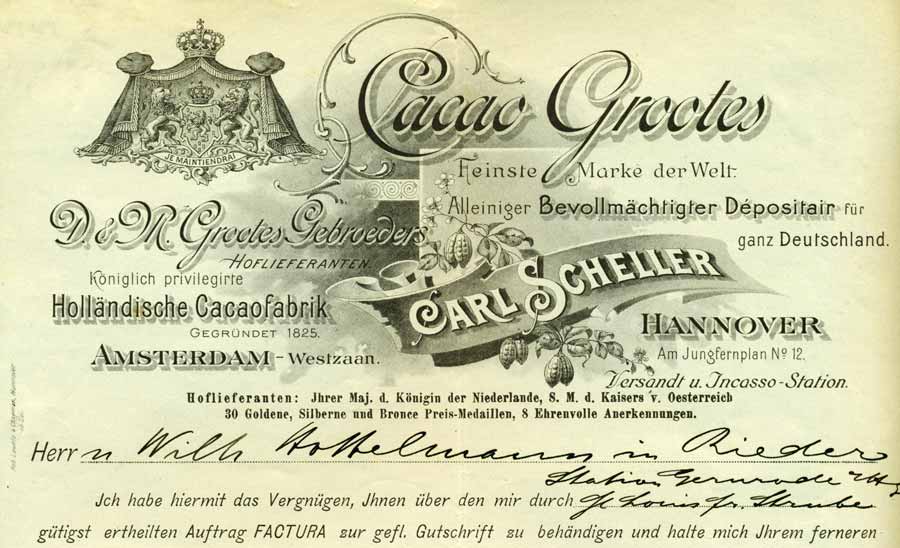 JE MAINTIENDRAI
Cacao Grootes
Feinste Marke der Welt.
Alleiniger Bevollmächtigter Dépositair für
ganz Deutschland.
D. & M. Grootes Gebroeders
HOFLIEFERANTEN.
Königlich privilegirte
Holländische Cacaofabrik
GEGRÜNDET 1825.
AMSTERDAM - Westzaan.
CARL SCHELLER
HANNOVER
Am Jungfernplan No 12.
Versandt u. Incasso-Station.
Hoflieferanten: Jhrer Maj. d. Königin der Niederlande, S. M. d. Kaisers v. Oesterreich
30 Goldene, Silberne und Bronce Preis-Medaillen, 8 Ehrenvolle Anerkennungen.
Herrn Wilh Hottelmann in Rieder
Station Gernrode
Ich habe hiermit das Vergnügen, Jhnen über den mir durch
gütigst ertheilten Auftrag FACTURA zur gefl. Gutschrift zu behändigen und halte mich Jhrem ferneren